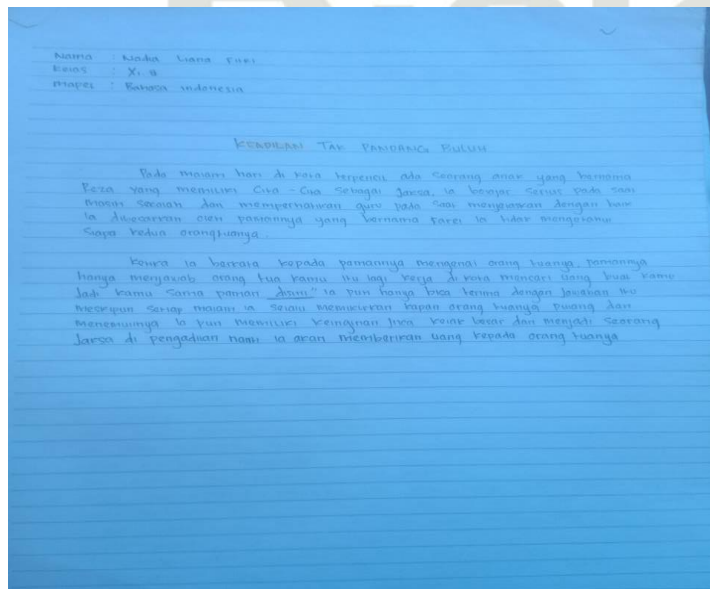 Nama : Nadia Liana Fitri
Kelas : XI.9
Mapel : Bahasa indonesia
KEADILAN TAK PANDANG BULUH
Pada malam hari di kota terpencil ada seorang anak yang bernama
Reza yang memiliki Cita - Cita sebagai Jaksa, ia belajar serius pada saat
masai sekolah dan memperhatikan guru pada saat menjelaskan dengan baik
ia dibesarkan oleh pamannya yang bernama Farel ia tidak mengetahui
Siapa kedua orangtuanya.
Ketika ia berkata kepada pamannya mengenai orang tuanya. Pamannya
hanya menjawab orang tua kamu itu lagi kerja di kota mencari uang buat kamu
Jadi kamu sama paman disini" ia pun hanya bisa terima dengan jawaban itu
meskipun setiap malam ia selalu memikirkan kapan orang tuanya pulang dan
menemuinya ia pun memiliki keinginan jika kelak besar dan menjadi seorang
Jaksa di pengadilan nanti ia akan memberikan uang kepada orang tuanya